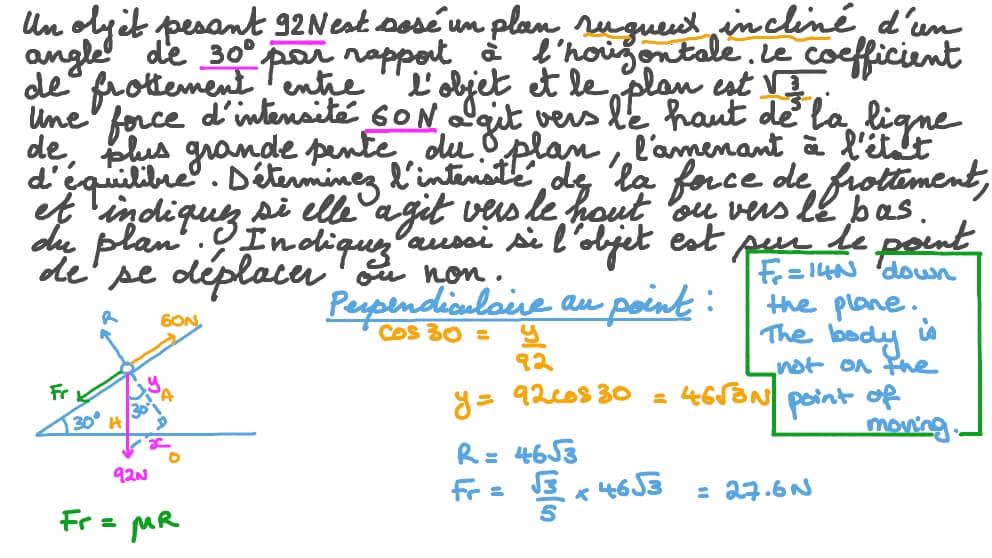 Un objet pesant 92N est posé un plan rugueux incliné d'un
angle de 30° par rapport à l'horizontale. Le coefficient
de frottement entre l'objet et le plan est √3/5.
Une force d'intensité 60N agit vers le haut de la ligne
de plus grande pente du plan, l'amenant à l'état
d'équilibre. Déterminez l'intensité de la force de frottement,
et indiquez si elle agit vers le haut ou vers le bas
du plan. Indiquez aussi si l'objet est sur le point
de se déplacer ou non.
Fr = 14N down
the plane.
The body is
not on the
point of
moving.
Perpendiculaire au point :
cos30 = y/92
y = 92cos30 = 46√3N
R = 46√3
Fr = √3/5 × 46√3 = 27.6N
R
60N
Fr
y
A
30°
H
30°
x
O
92N
Fr = μR